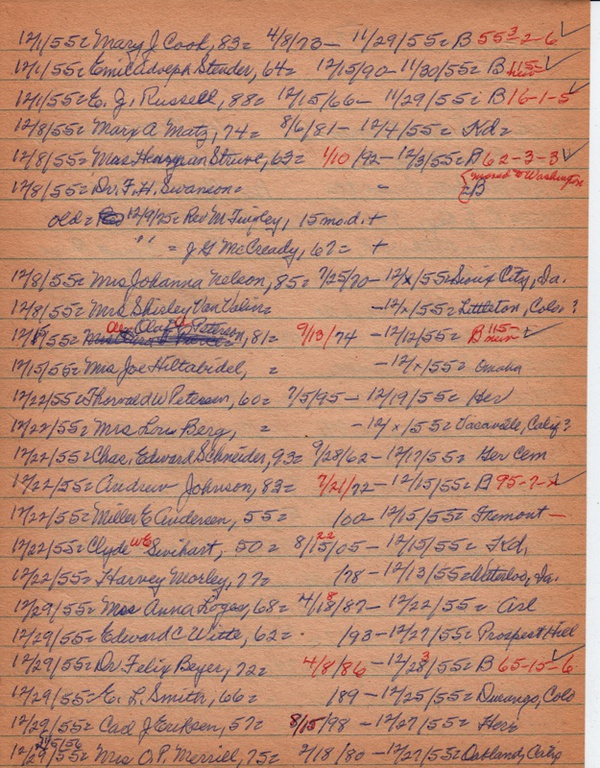 12/1/55= Mary J Cook, 83= 4/8/73 - 11/29/55= B 55-3-2-6 ✓
12/1/55= Emil Adolph Studer, 64= 12/15/90 - 11/30/55= B 115- ✓
12/1/55= E. J. Russell, 88= 12/15/66 - 11/29/55= B 16-1-5 ✓
12/8/55= Mary A Matz, 74= 8/6/81 - 12/4/55= Kd=
12/8/55= Mrs Struve, 63= 1/10/92 - 12/3/55= B 62-3-3 ✓
12/8/55= Dr. F. H. Swanson= - =B { moved to Washington
old= 12/9/75= Rev M Tingley, 15 mo.d. +
" = J G McCready, 67= +
12/8/55= Mrs Johanna Nelson, 85= 7/25/70 - 12/x/55= Sioux City, Ia.
12/8/55= Mrs Shirley Van Valin= - 12/x/55= Littleton, Colo?
12/15/55= Olaf Peterson, 81= 9/13/74 - 12/12/55= B 115- ✓
12/15/55= Mrs Joe Hiltabidel, = - 12/x/55= Omaha
12/22/55= Thorvald W Petersen, 60= 7/5/95 - 12/19/55= Her
12/22/55= Mrs Lou Berg, = - 12/x/55= Vacaville, Calif?
12/22/55= Chas. Edward Schneider, 93= 9/28/62 - 12/17/55= Her Cem
12/22/55= Andrew Johnson, 83= 7/21/72 - 12/15/55= B 95-7-x ✓
12/22/55= Miller E Andersen, 55= /00 - 12/15/55= Fremont -
12/22/55= Clyde WE Swihart, 50= 8/15/05 22 - 12/15/55= Kd,
12/22/55= Harvey Morley, 77= /78 - 12/13/55= Waterloo, Ia.
12/29/55= Mrs Anna Loges, 68= 4/18/87 - 12/22/55= Arl
12/29/55= Edward C Witte, 62= /93 - 12/27/55= Prospect Hill
12/29/55= Dr Felix Beyer, 72= 4/8/86 - 12/23/55= B 65-15-6 ✓
12/29/55= E. L. Smith, 66= 189 - 12/25/55= Durango, Colo
12/29/55= Carl J Eriksen, 57= 8/15/98 - 12/27/55= Her
12/29/55= Mrs O. P. Merrill, 75= 2/18/80 - 12/27/55= Oakland, Calif